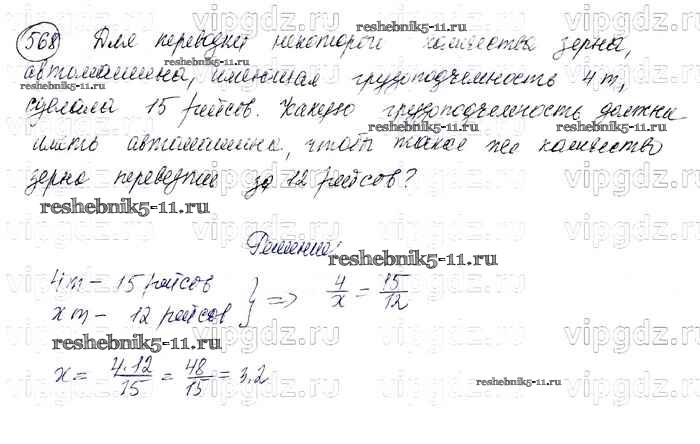 568 Для перевозки некоторого количества зерна,
автомашина, имеющая грузоподъемность 4 т,
сделала 15 рейсов. Какую грузоподъемность должна
иметь автомашина, чтобы такое же количество
зерна перевезти за 12 рейсов?
Решение:
4 т – 15 рейсов
x т – 12 рейсов } => 4/x = 15/12
x = 4·12/15 = 48/15 = 3,2
reshebnik5-11.ru
vipgdz.ru